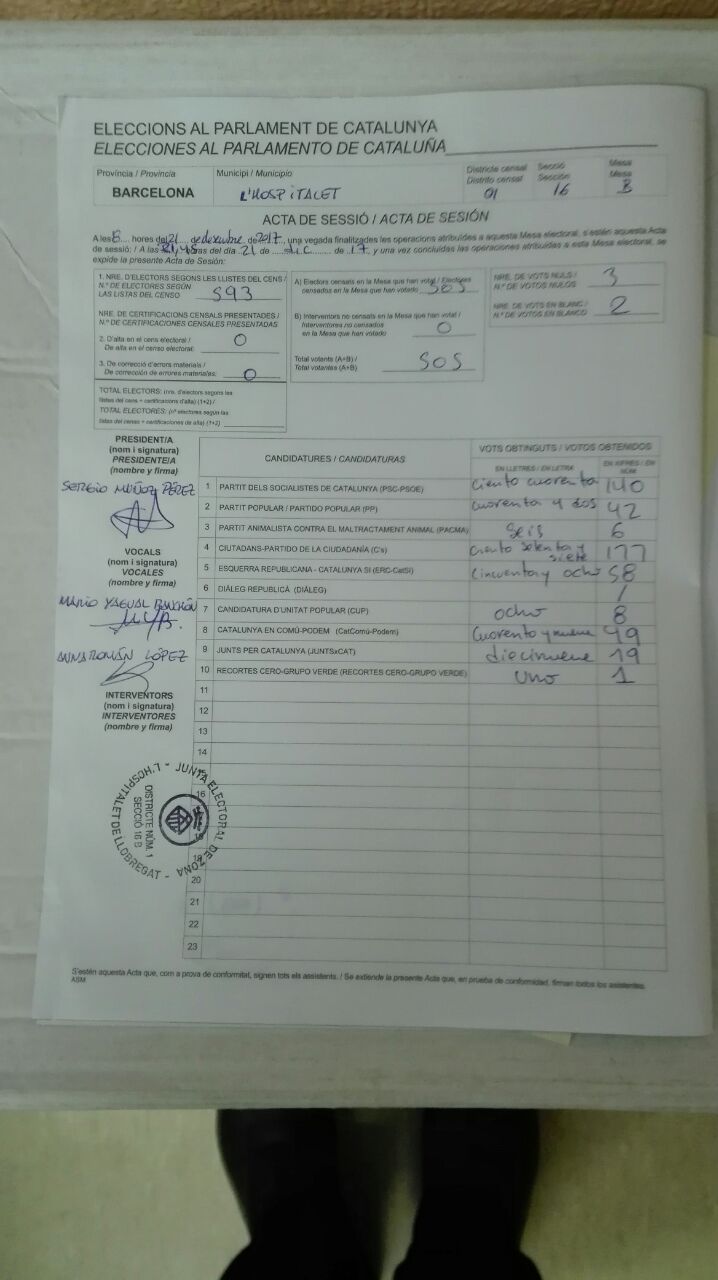 ELECCIONS AL PARLAMENT DE CATALUNYA
ELECCIONES AL PARLAMENTO DE CATALUÑA
Província / Provincia
BARCELONA
Municipi / Municipio
L'HOSPITALET
Districte censal
Distrito censal
01
Secció
Sección
16
Mesa
Mesa
B
ACTA DE SESSIÓ / ACTA DE SESIÓN
A les 8 hores del 21 de desembre de 2017, una vegada finalitzades les operacions atribuïdes a aquesta Mesa electoral, s'estén aquesta Acta
de sessió: / A las 21,45 horas del día 21 de dic de 17 y una vez concluidas las operaciones atribuidas a esta Mesa electoral, se
expide la presente Acta de Sesión:
1. NRE. D'ELECTORS SEGONS LES LLISTES DEL CENS /
N.º DE ELECTORES SEGÚN
LAS LISTAS DEL CENSO 593
NRE. DE CERTIFICACIONS CENSALS PRESENTADES /
N.º DE CERTIFICACIONES CENSALES PRESENTADAS
2. D'alta en el cens electoral /
De alta en el censo electoral: 0
3. De correcció d'errors materials /
De corrección de errores materiales: 0
TOTAL ELECTORS: (nre. d'electors segons les
llistes del cens + certificacions d'alta) (1+2) /
TOTAL ELECTORES: (nº electores según las
listas del censo + certificaciones de alta) (1+2)
A) Electors censats en la Mesa que han votat / Electores
censados en la Mesa que han votado 505
B) Interventors no censats en la Mesa que han votat /
Interventores no censados
en la Mesa que han votado 0
Total votants (A+B) /
Total votantes (A+B) 505
NRE. DE VOTS NULS /
N.º DE VOTOS NULOS 3
NRE. DE VOTS EN BLANC /
N.º DE VOTOS EN BLANCO 2
PRESIDENT/A
(nom i signatura)
PRESIDENTE/A
(nombre y firma)
SERGIO MUÑOZ PÉREZ
VOCALS
(nom i signatura)
VOCALES
(nombre y firma)
MARIO YAGUAL
ANNA ROMÁN LÓPEZ
INTERVENTORS
(nom i signatura)
INTERVENTORES
(nombre y firma)
CANDIDATURES / CANDIDATURAS
VOTS OBTINGUTS / VOTOS OBTENIDOS
EN LLETRES / EN LETRA
EN XIFRES / EN NÚM
1 PARTIT DELS SOCIALISTES DE CATALUNYA (PSC-PSOE) Ciento cuarenta 140
2 PARTIT POPULAR / PARTIDO POPULAR (PP) Cuarenta y dos 42
3 PARTIT ANIMALISTA CONTRA EL MALTRACTAMENT ANIMAL (PACMA) Seis 6
4 CIUTADANS-PARTIDO DE LA CIUDADANÍA (C's) Ciento setenta y siete 177
5 ESQUERRA REPUBLICANA - CATALUNYA SÍ (ERC-CatSí) Cincuenta y ocho 58
6 DIÀLEG REPUBLICÀ (DIÀLEG) /
7 CANDIDATURA D'UNITAT POPULAR (CUP) ocho 8
8 CATALUNYA EN COMÚ-PODEM (CatComú-Podem) Cuarenta y nueve 49
9 JUNTS PER CATALUNYA (JUNTSxCAT) diecinueve 19
10 RECORTES CERO-GRUPO VERDE (RECORTES CERO-GRUPO VERDE) Uno 1
11
12
13
14
16
19
20
21
22
23
JUNTA ELECTORAL DE ZONA - L'HOSPITALET DE LLOBREGAT -
DISTRICTE NÚM. 1
SECCIÓ 16 B
S'estén aquesta Acta que, com a prova de conformitat, signen tots els assistents. / Se extiende la presente Acta que, en prueba de conformidad, firman todos los asistentes.
ASM